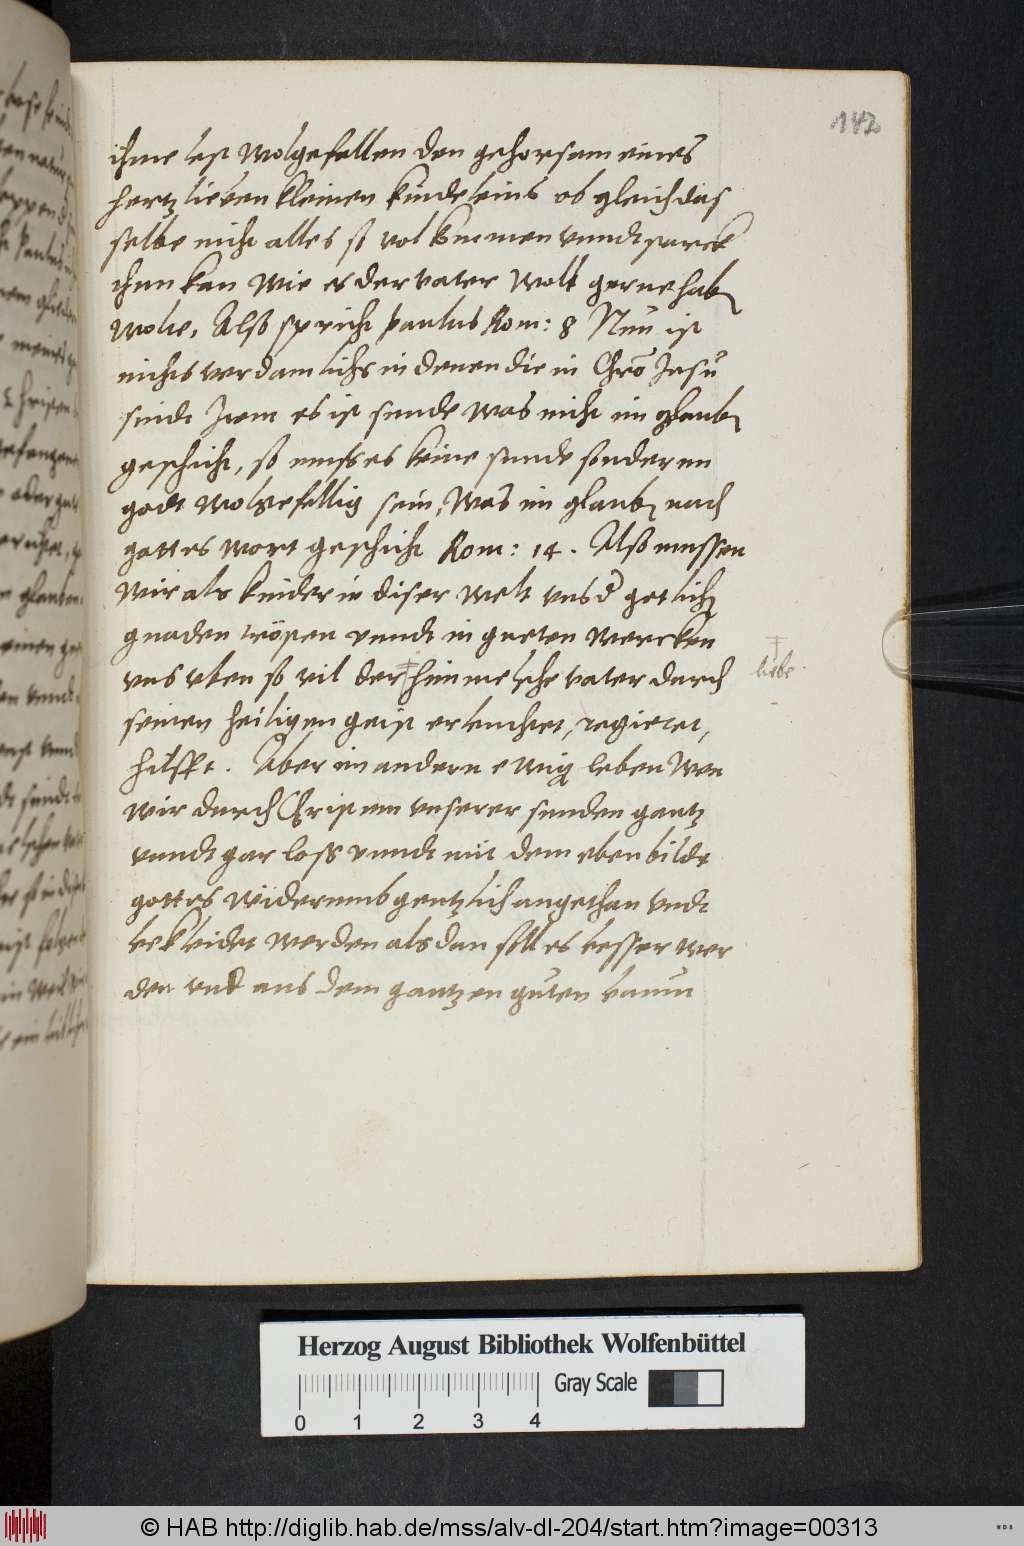 142
ihme lest wolgefallen den gehorsam eines
hertzlieben kleinen kindeleins ob gleich das
selbe nicht alles so volkommen vnndt starck
thun kan wie es der vater wolt gerne haben
wolte, Also spricht Paulus Rom: 8 Nun ist
nichts verdamlichs in denen die in Chro Jesu
sindt Item es ist sunde was nicht im glauben
geschicht, so muss es keine sunde sonderm
gott wolgefellig sein, Was im glauben nach
gottes wort geschicht Rom: 14. Also mussen
wir als kinder in diser welt vns d gotlichen
gnaden trösten vnndt in gueten wercken
vns vben so vil der ‡ himmelsche vater durch
‡ liebe
seinen heiligen geist erleuchtet, regieret,
hilfft. Aber im andern ewigen leben wen
wir durch Christum vnserer sunden gantz
vnndt gar loss vnndt mit dem ebenbilde
gottes widerumb gentzlich angethan vndt
bekleidet werden als dan soll es besser wer
den vnd aus dem gantzen guten baum
Herzog August Bibliothek Wolfenbüttel
0 1 2 3 4
Gray Scale
© HAB http://diglib.hab.de/mss/alv-dl-204/start.htm?image=00313